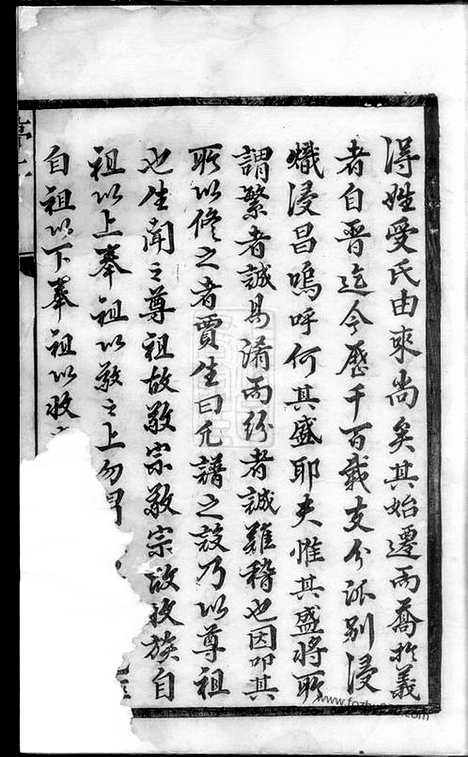 得姓受氏由來尚矣其始遷而喬於義
者自晉迄今歷千百載支分派别浸
熾浸昌嗚呼何其盛耶夫惟其盛將所
謂繁者誠易淆而紛者誠難稽也因叩其
所以修之者賈生曰凡譜之設乃以尊祖
也生聞之尊祖故敬宗敬宗故收族自
祖以上奉祖以敬之上勿
自祖以下奉祖以收
www.fozhu920.com